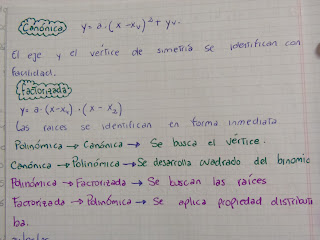 Canónica y = a · (x - xv)² + yv.
El eje y el vértice de simetría se identifican con
facilidad.
Factorizada
y = a · (x - x₁) · (x - x₂)
Las raíces se identifican en forma inmediata
Polinómica → Canónica → Se busca el vértice.
Canónica → Polinómica → Se desarrolla cuadrado del binomio
Polinómica → Factorizada → Se buscan las raíces
Factorizada → Polinómica → Se aplica propiedad distributi
ba.